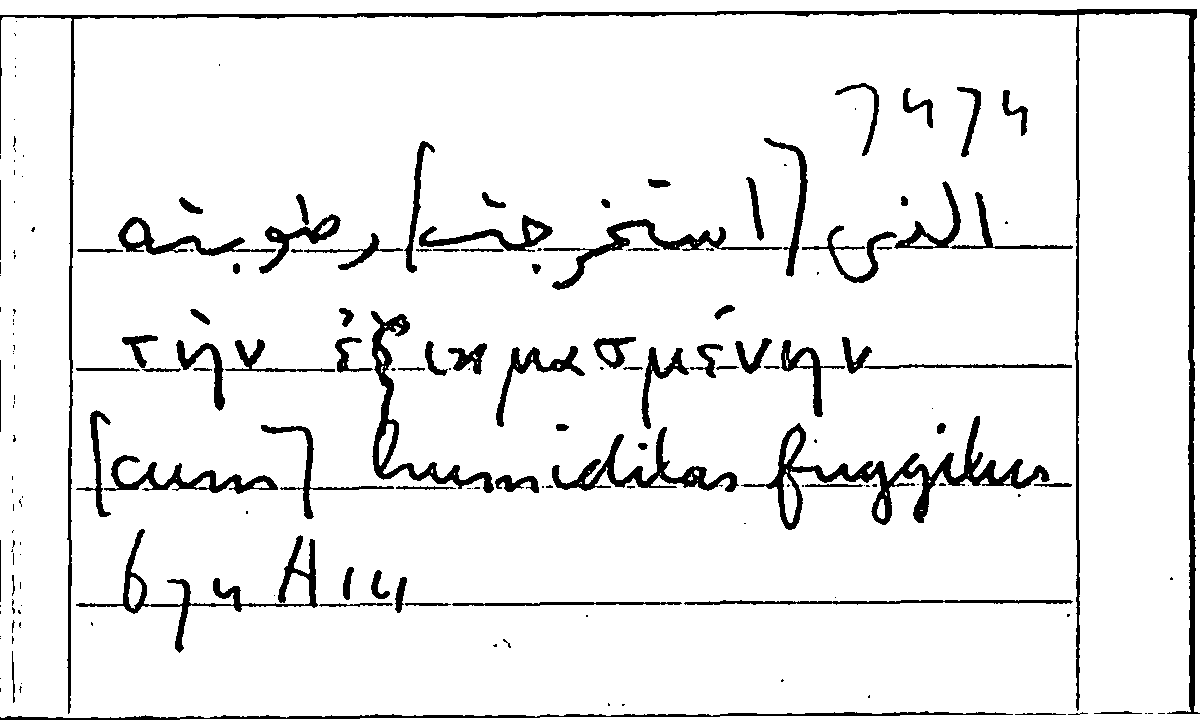 7474
الذى [استخرجت] رطوبته
τὴν ἐξικμασμένην
[cum] humiditas fuggitur
674 A 14